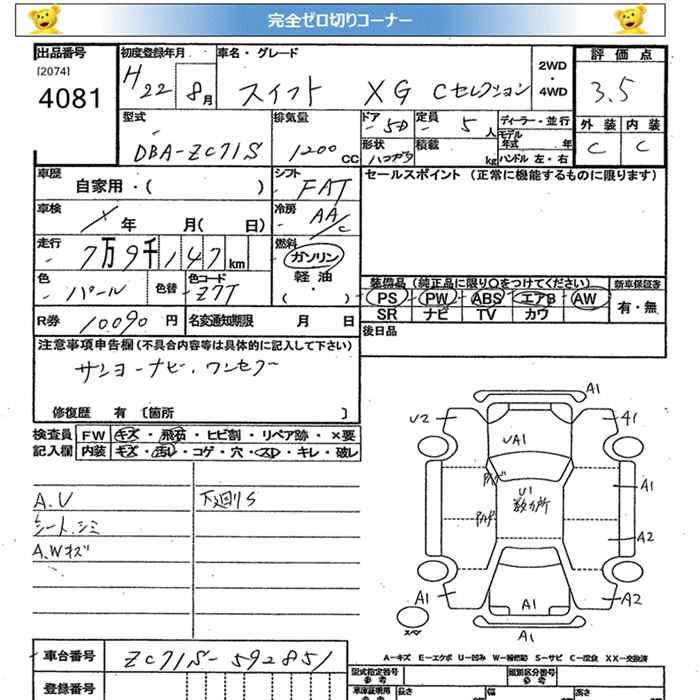 完全ゼロ切りコーナー
出品番号 初度登録年月 車名・グレード 2WD・4WD 評価点
[2074]
4081 H22 8月 スイフト XG Cセレクション 3.5
型式 排気量 ドア 定員 ディーラー・並行 外装 内装
5D 5人 モデル年式 年 C C
DBA-ZC71S 1200CC 形状 積載 kg ハンドル 左・右
車歴 シフト セールスポイント (正常に機能するものに限ります)
自家用・( ) FAT
車検 年 月( 日) 冷房 AA/C
走行 7万9千147km 燃料 ガソリン
軽油・( )
色 パール 色替 色コード Z7T
装備品 (純正品に限り○をつけてください) 新車保証書
PS PW ABS エアB AW 有・無
SR ナビ TV カワ
R券 10090円 名変通知期限 月 日 後日品
注意事項申告欄 (不具合内容等は具体的に記入して下さい)
サンヨーナビ.ワンセグ
修復歴 有 [箇所 ]
検査員 FW キズ・飛石・ヒビ割・リペア跡・×要
記入欄 内装 キズ・汚レ・コゲ・穴・スレ・キレ・破レ
A.U 下廻りS
シート.シミ
A.Wキズ
A1
U2 A1
UA1
A1
U1
数カ所
A2
A1 A2
A1
A1
スペア
A-キズ E-エクボ U-凹み W-補修跡 S-サビ C-腐食 XX-交換済
車台番号 ZC71S-592851
登録番号
型式指定番号 参考 類別区分番号 参考
長さ 幅 高さ